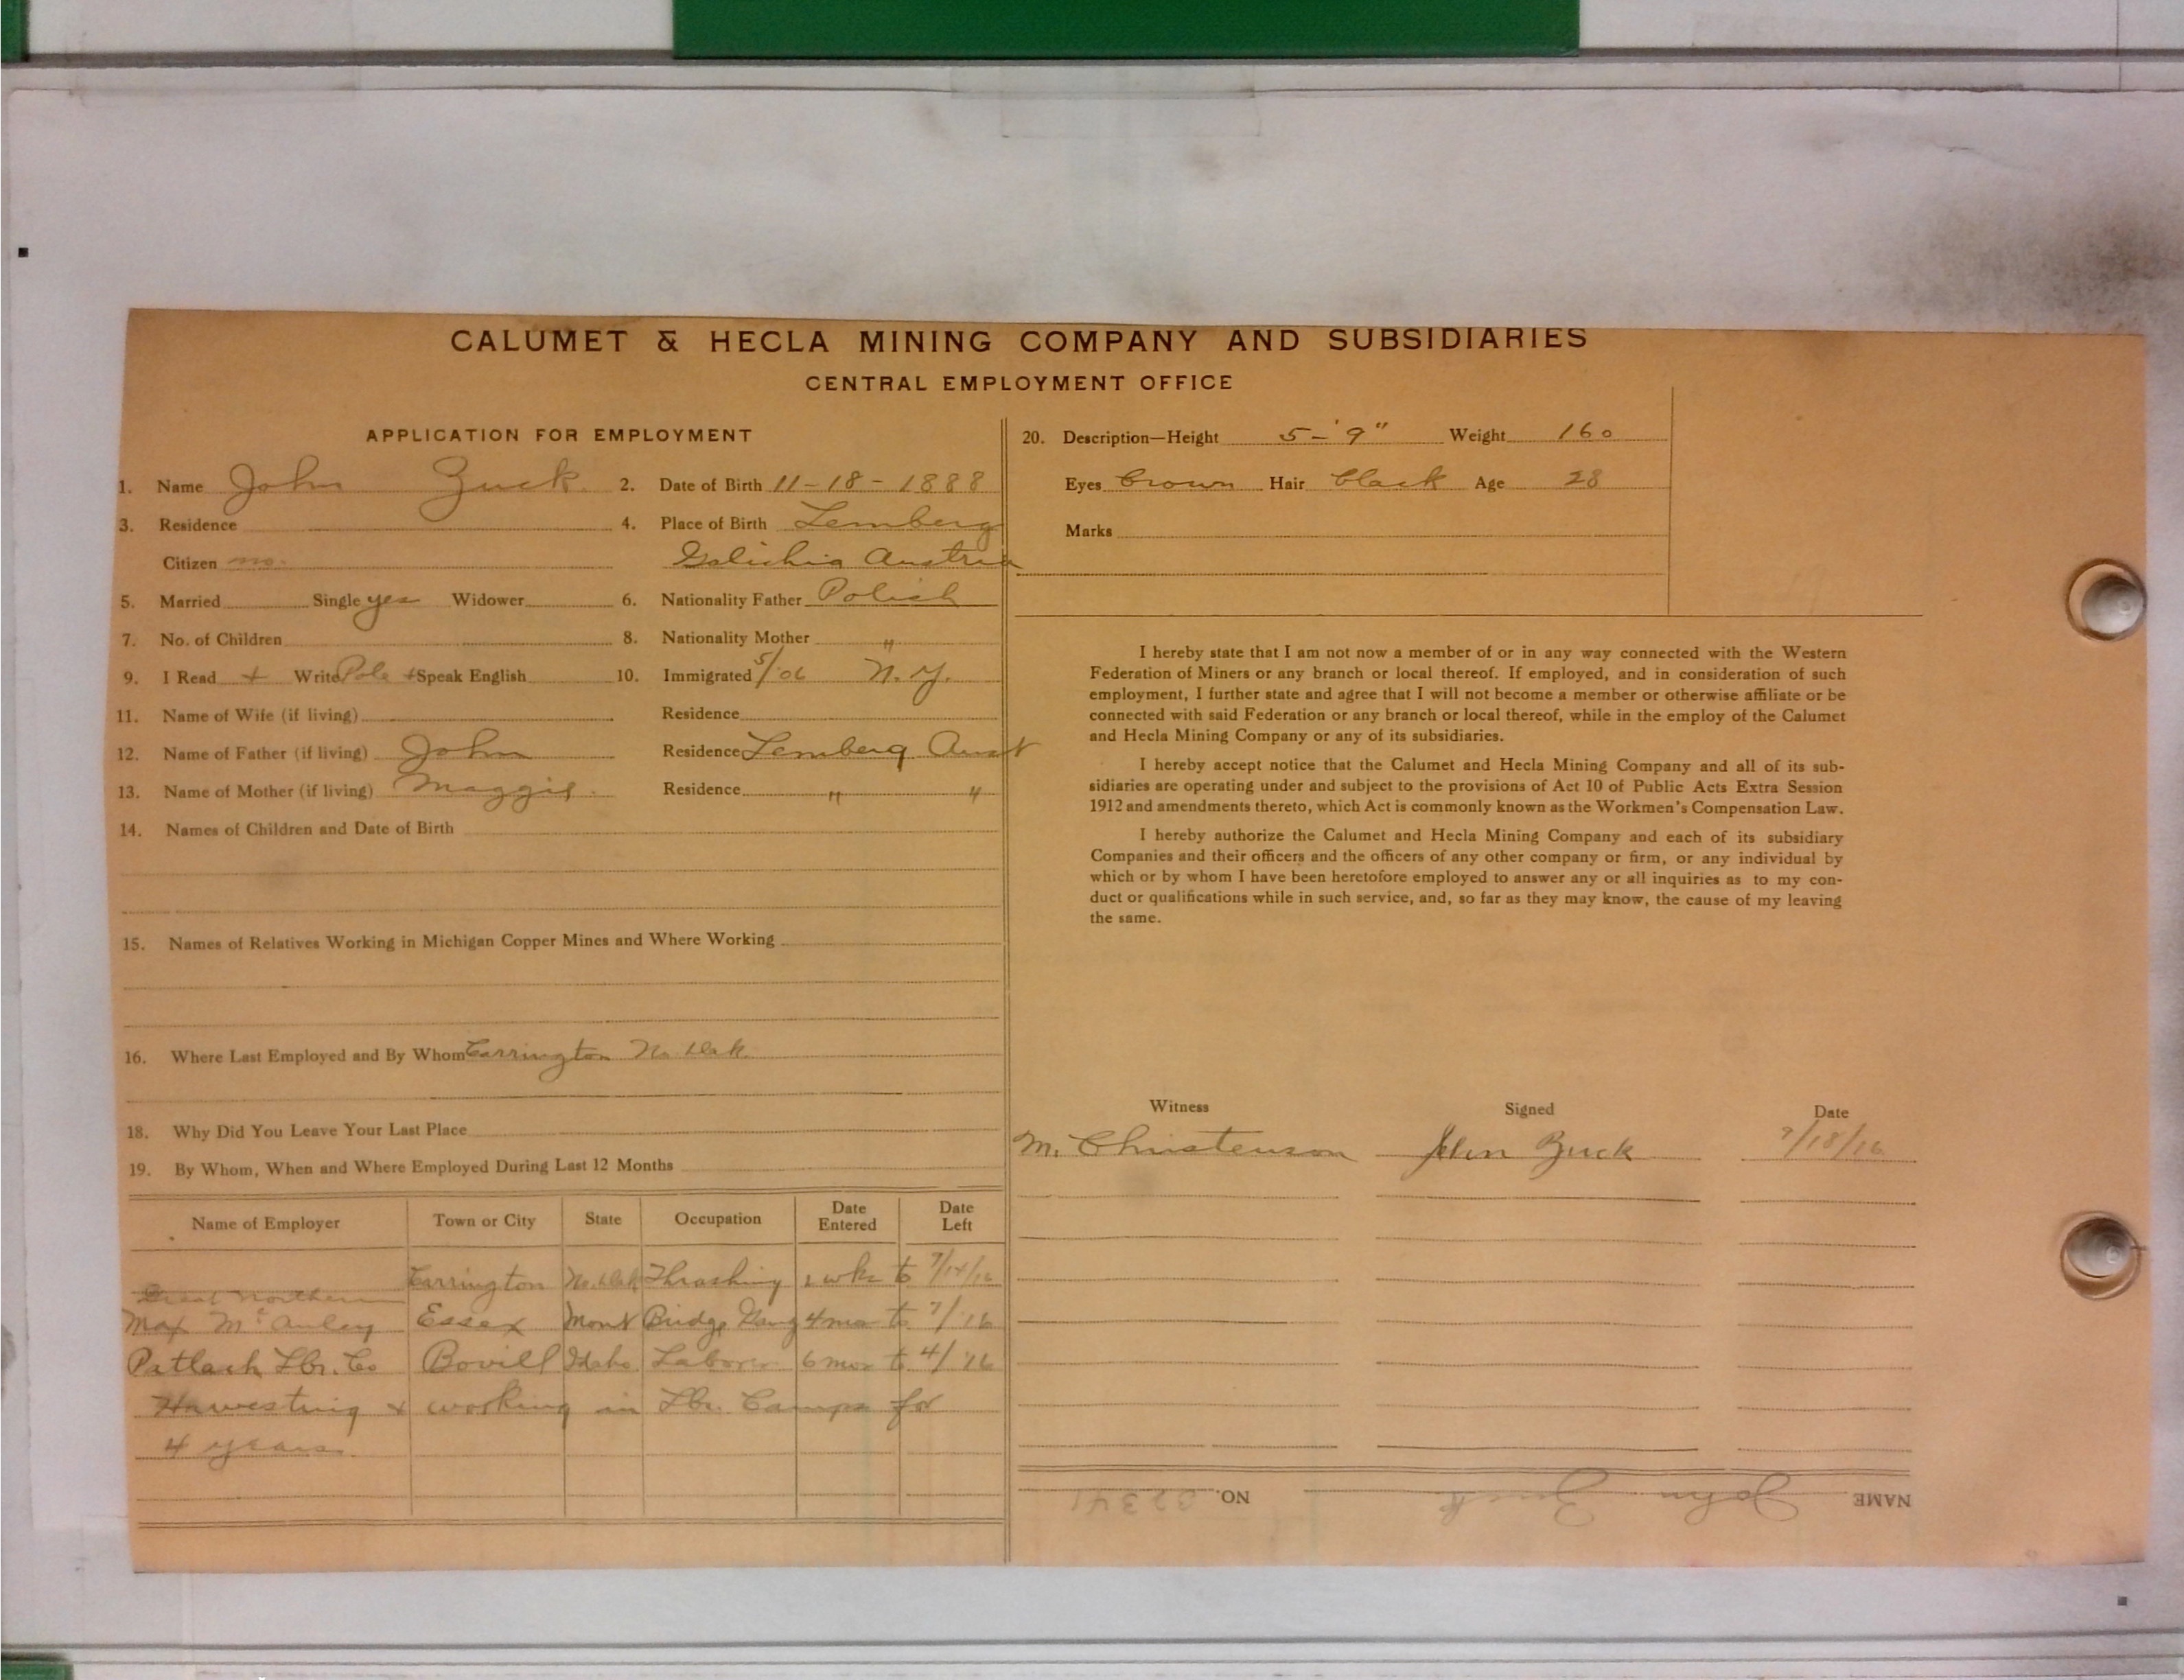 CALUMET & HECLA MINING COMPANY AND SUBSIDIARIES
CENTRAL EMPLOYMENT OFFICE
APPLICATION FOR EMPLOYMENT
1. Name John Zuck 2. Date of Birth 11-18-1888
3. Residence 4. Place of Birth Lemberg
Citizen no. Galichia Austria
5. Married Single yes Widower 6. Nationality Father Polish
7. No. of Children 8. Nationality Mother "
9. I Read + Write Pole + Speak English 10. Immigrated 5/06 N. Y.
11. Name of Wife (if living) Residence
12. Name of Father (if living) John Residence Lemberg Aust
13. Name of Mother (if living) Maggie Residence " "
14. Names of Children and Date of Birth
15. Names of Relatives Working in Michigan Copper Mines and Where Working
16. Where Last Employed and By Whom Carrington No. Dak.
18. Why Did You Leave Your Last Place
19. By Whom, When and Where Employed During Last 12 Months
Name of Employer Town or City State Occupation Date Entered Date Left
Carrington No. Dak Thrashing wks to
Great Northern
Max McAuley Essex Mont Bridge Gang 4 mos to 7/16
Potlach Lbr. Co Bovill Idaho Laborer 6 mos to 4/16
Harvesting & working in Lbr. Camps for
4 years.
20. Description—Height 5-'9" Weight 160
Eyes brown Hair black Age 28
Marks
I hereby state that I am not now a member of or in any way connected with the Western
Federation of Miners or any branch or local thereof. If employed, and in consideration of such
employment, I further state and agree that I will not become a member or otherwise affiliate or be
connected with said Federation or any branch or local thereof, while in the employ of the Calumet
and Hecla Mining Company or any of its subsidiaries.
I hereby accept notice that the Calumet and Hecla Mining Company and all of its sub-
sidiaries are operating under and subject to the provisions of Act 10 of Public Acts Extra Session
1912 and amendments thereto, which Act is commonly known as the Workmen's Compensation Law.
I hereby authorize the Calumet and Hecla Mining Company and each of its subsidiary
Companies and their officers and the officers of any other company or firm, or any individual by
which or by whom I have been heretofore employed to answer any or all inquiries as to my con-
duct or qualifications while in such service, and, so far as they may know, the cause of my leaving
the same.
Witness Signed Date
M. Christenson John Zuck
NAME John Zuck NO.